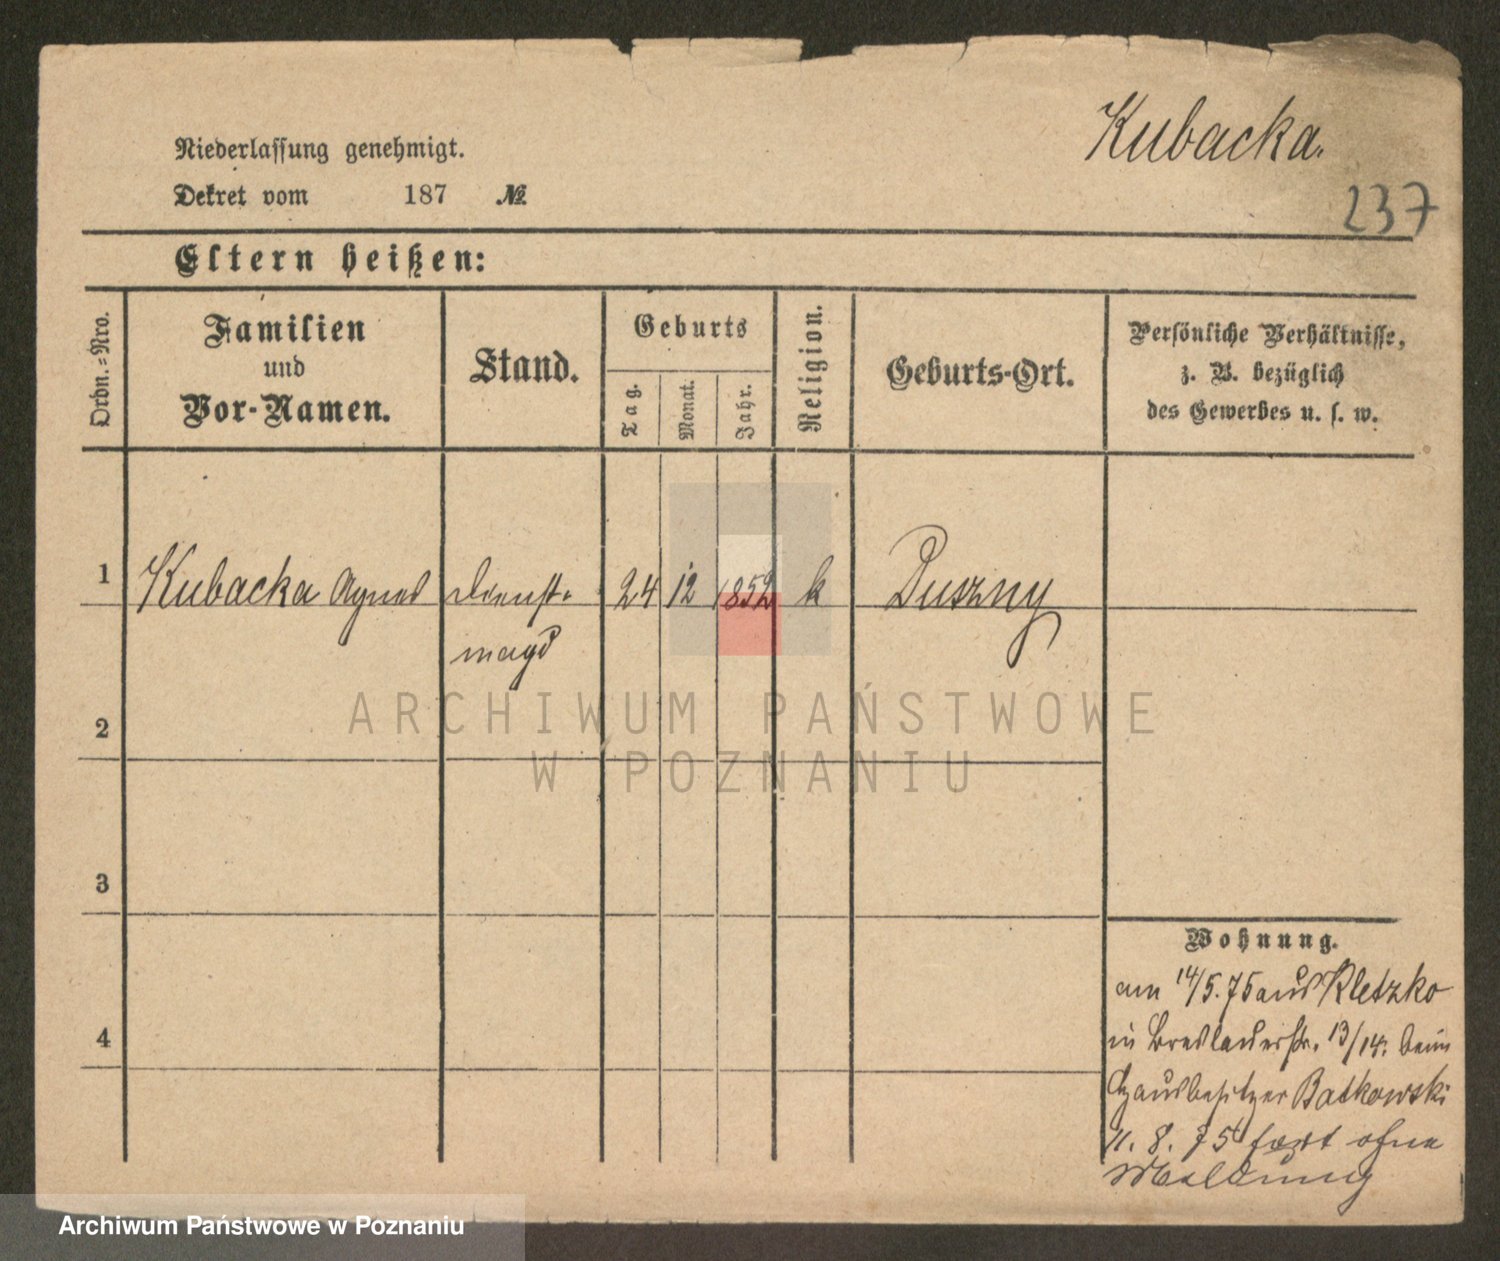 Kubacka.
237
Niederlassung genehmigt.
Dekret vom 187 №
Eltern heißen:
Ordn.=Nro.
Familien
und
Vor-Namen.
Stand.
Geburts
Tag.
Monat.
Jahr.
Religion.
Geburts-Ort.
Persönliche Verhältnisse,
z. B. bezüglich
des Gewerbes u. s. w.
1 Kubacka Agnes Dienst- 24 12 1852 k Duszny
magd
2
3
4
Wohnung.
am 14/5.75 aus Kletzko
in Breslauerstr. 13/14. beim
Hausbesitzer Batkowski
11. 8. 75 fort ohne
Meldung
ARCHIWUM PAŃSTWOWE
W POZNANIU
Archiwum Państwowe w Poznaniu